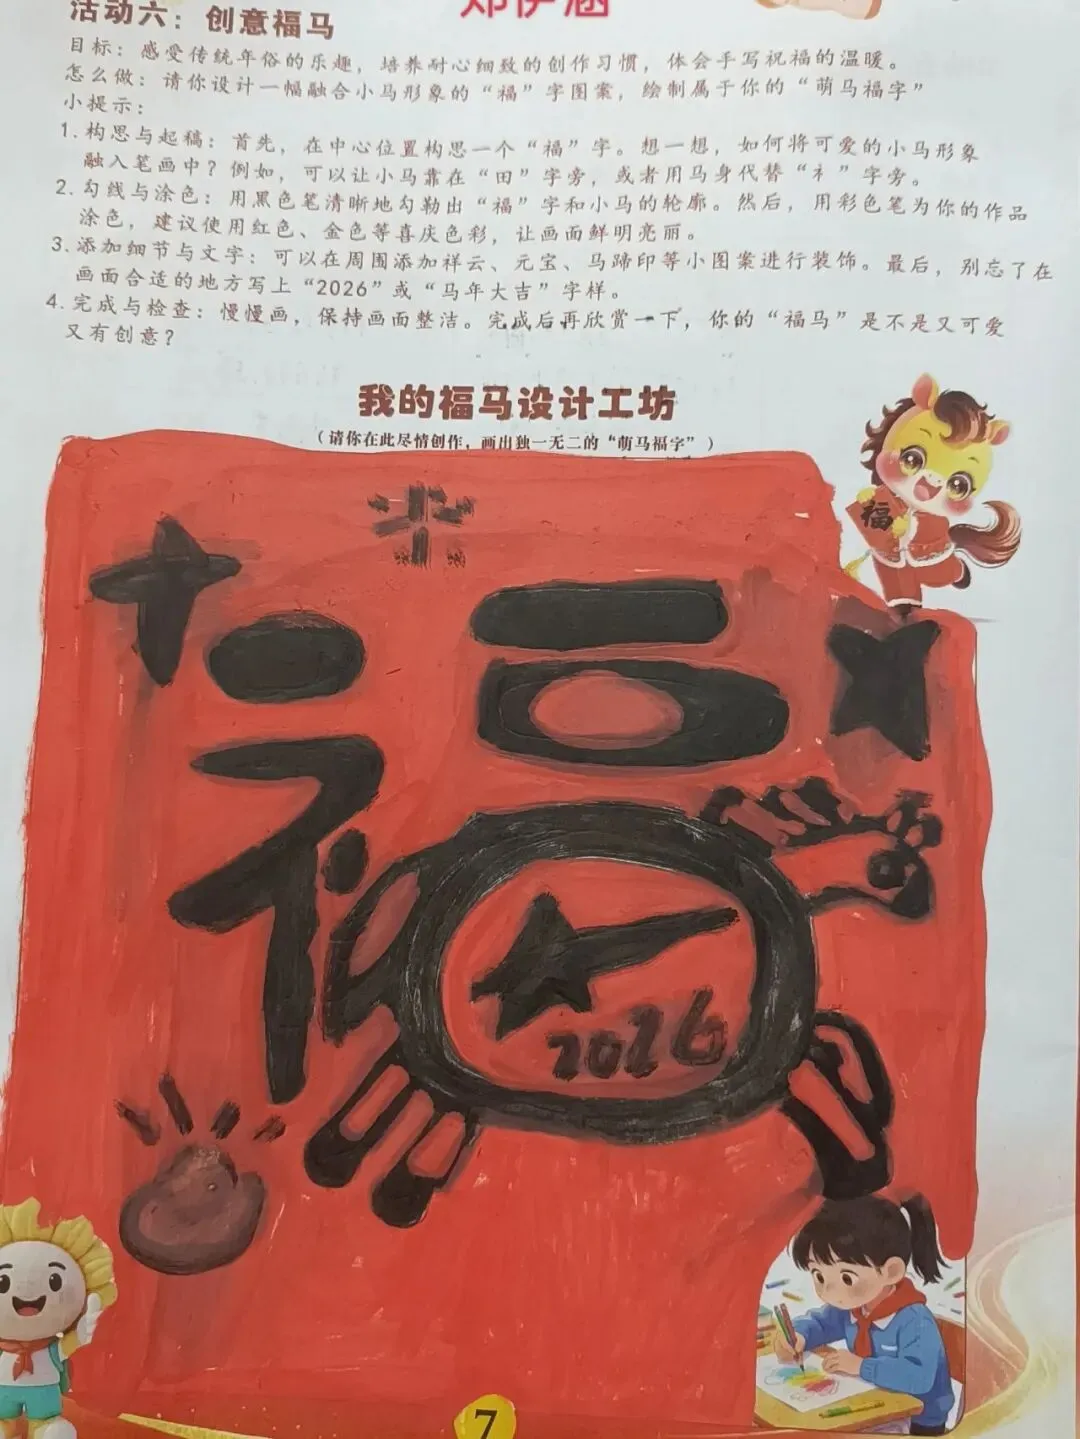 活动六：创意福马
目标：感受传统年俗的乐趣，培养耐心细致的创作习惯，体会手写祝福的温暖。
怎么做：请你设计一幅融合小马形象的“福”字图案，绘制属于你的“萌马福字”
小提示：
1. 构思与起稿：首先，在中心位置构思一个“福”字。想一想，如何将可爱的小马形象
融入笔画中？例如，可以让小马靠在“田”字旁，或者用马身代替“礻”字旁。
2. 勾线与涂色：用黑色笔清晰地勾勒出“福”字和小马的轮廓。然后，用彩色笔为你的作品
涂色，建议使用红色、金色等喜庆色彩，让画面鲜明亮丽。
3. 添加细节与文字：可以在周围添加祥云、元宝、马蹄印等小图案进行装饰。最后，别忘了在
画面合适的地方写上“2026”或“马年大吉”字样。
4. 完成与检查：慢慢画，保持画面整洁。完成后再欣赏一下，你的“福马”是不是又可爱
又有创意？
我的福马设计工坊
（请你在此尽情创作，画出独一无二的“萌马福字”）
福
福
2026
7